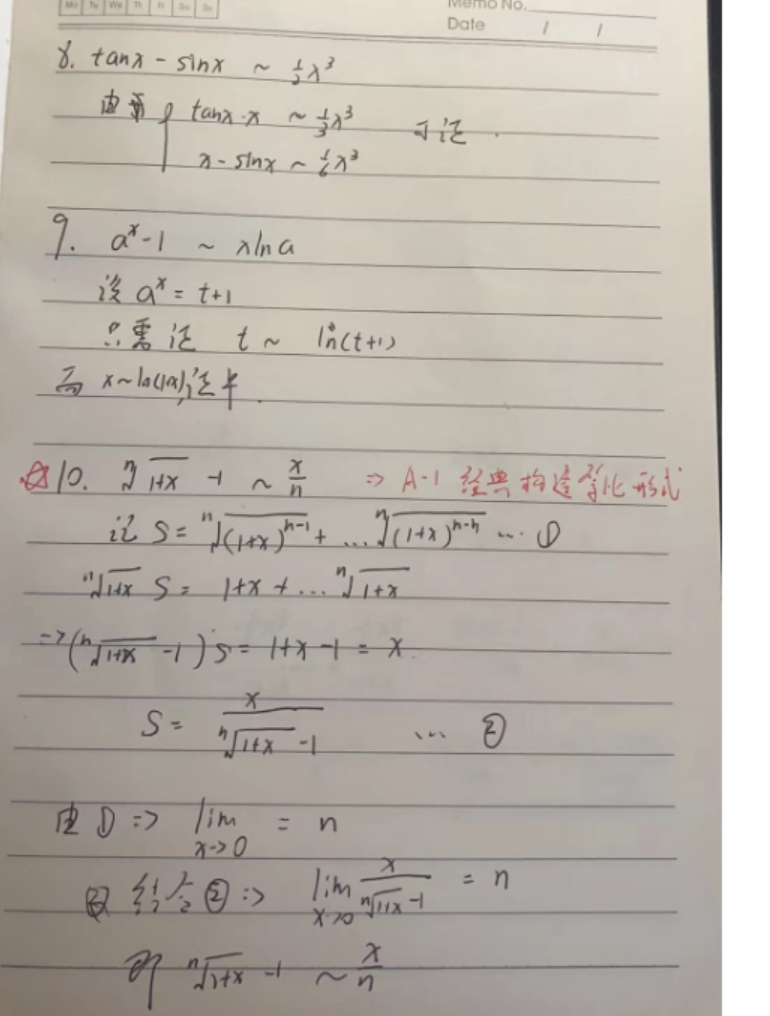 Mo Tu We Th Fr Sa Su
Memo No.
Date / /
8. tanx - sinx ~ ½x³
由 tanx - x ~ ⅓x³ 可证.
x - sinx ~ ⅙x³
9. aˣ-1 ~ xlna
设 aˣ = t+1
只需证 t ~ ln(t+1)
而 x~ln(1+x), 证毕.
10. ⁿ√(1+x) -1 ~ x/n => A-1 经典构造等比形式
记 S = ⁿ√(1+x)ⁿ⁻¹ + ... ⁿ√(1+x)ⁿ⁻ⁿ ... ①
ⁿ√(1+x) S = 1+x + ... ⁿ√(1+x)
=> (ⁿ√(1+x) -1) S = 1+x-1 = x.
S = x/(ⁿ√(1+x) -1) ... ②
由①=> lim x->0 = n
结合②=> lim x->0 x/(ⁿ√(1+x) -1) = n
即 ⁿ√(1+x) -1 ~ x/n